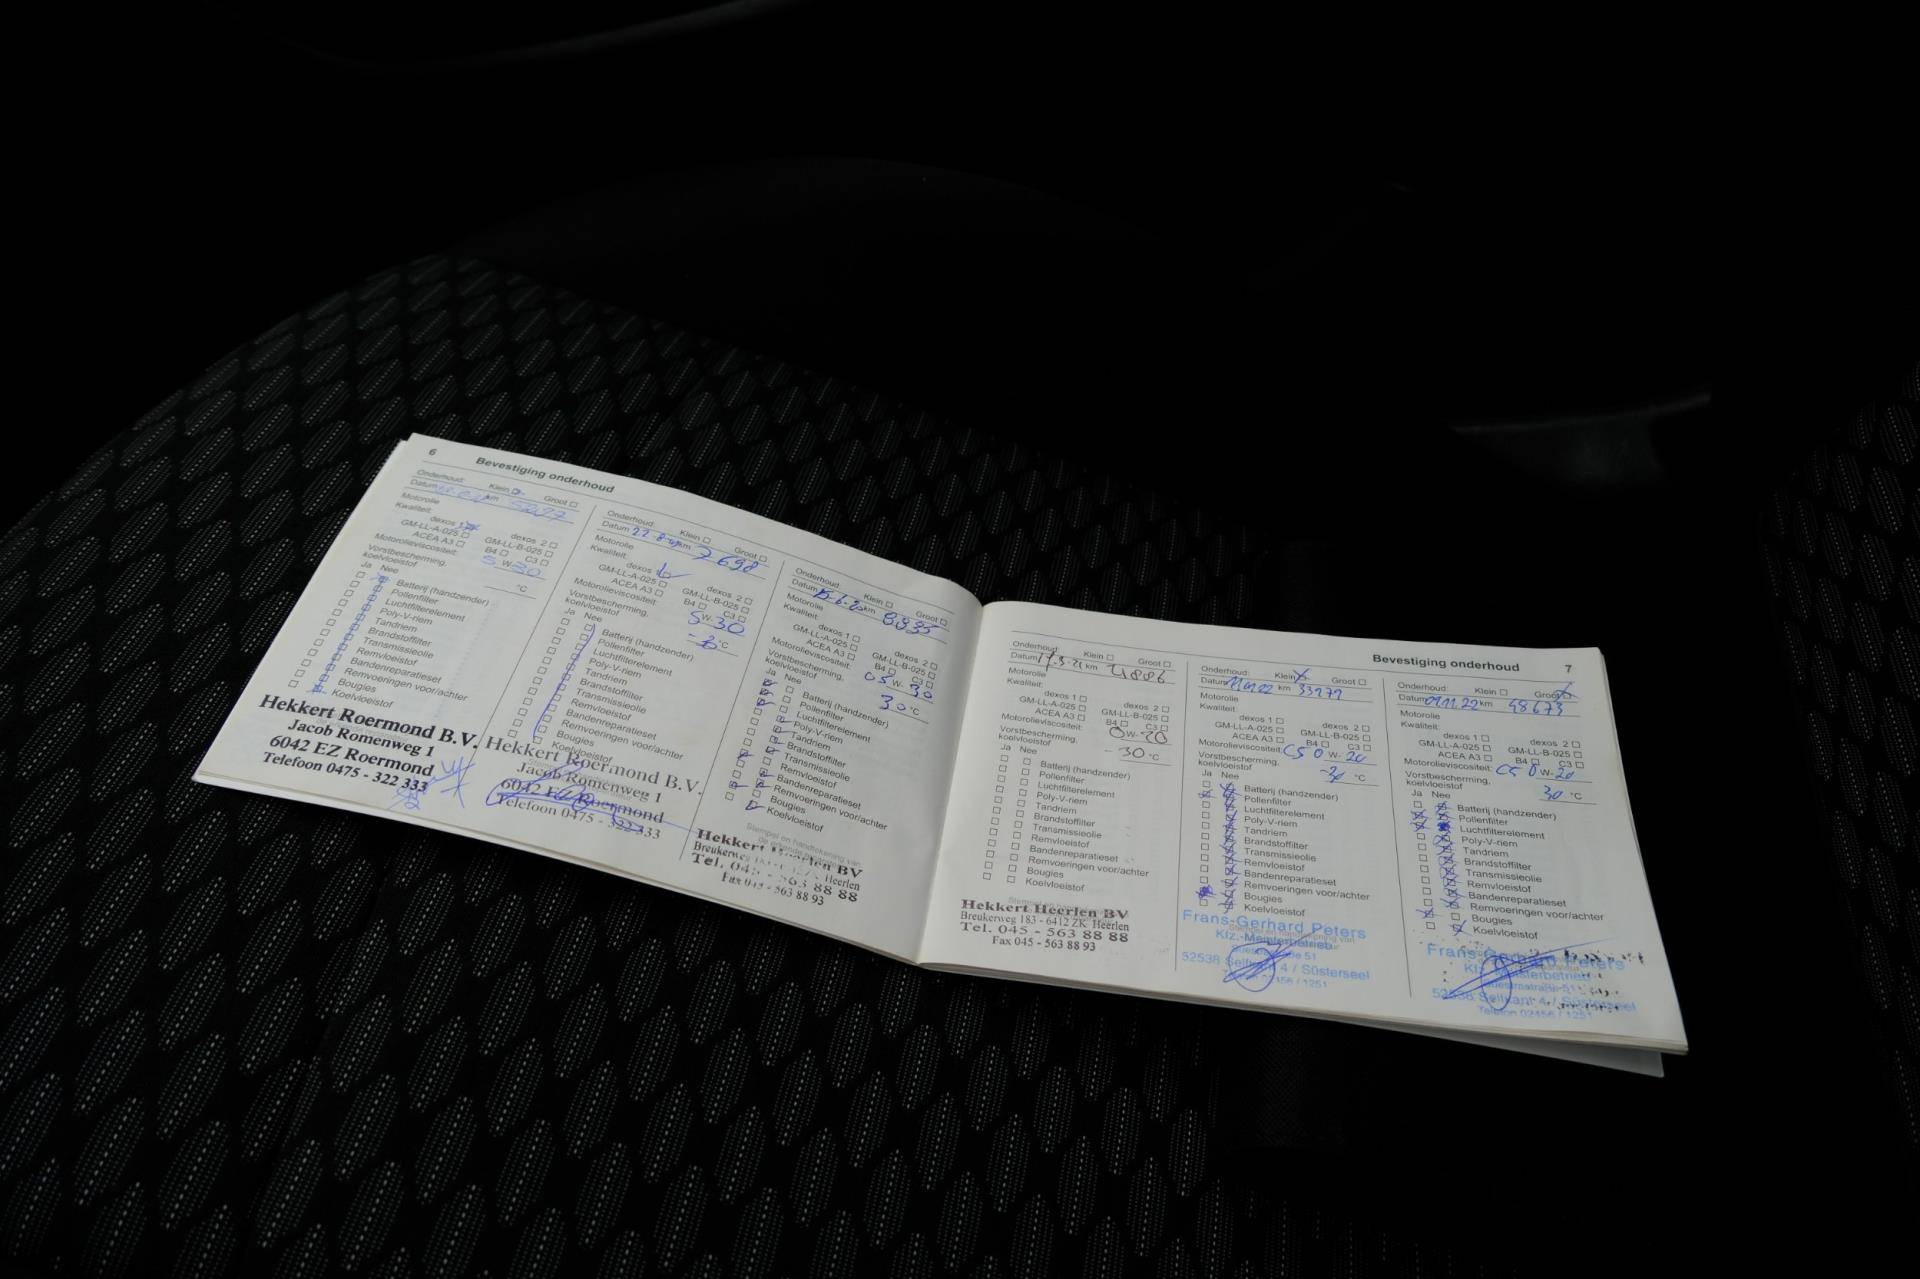 6 Bevestiging onderhoud
Onderhoud: Klein Groot
Datum km 5227
Motorolie
Kwaliteit:
dexos 1 dexos 2
GM-LL-A-025 GM-LL-B-025
ACEA A3 B4 C3
Motorolieviscositeit: 5 W-30
Vorstbescherming,
koelvloeistof °C
Ja Nee
Batterij (handzender)
Pollenfilter
Luchtfilterelement
Poly-V-riem
Tandriem
Brandstoffilter
Transmissieolie
Remvloeistof
Bandenreparatieset
Remvoeringen voor/achter
Bougies
Koelvloeistof
Hekkert Roermond B.V.
Jacob Romenweg 1
6042 EZ Roermond
Telefoon 0475 - 322 333
Onderhoud: Klein Groot
Datum 22-8- km 7698
Motorolie
Kwaliteit:
dexos 1 dexos 2
GM-LL-A-025 GM-LL-B-025
ACEA A3 B4 C3
Motorolieviscositeit: 5 W-30
Vorstbescherming,
koelvloeistof °C
Ja Nee
Batterij (handzender)
Pollenfilter
Luchtfilterelement
Poly-V-riem
Tandriem
Brandstoffilter
Transmissieolie
Remvloeistof
Bandenreparatieset
Remvoeringen voor/achter
Bougies
Koelvloeistof
Hekkert Roermond B.V.
Jacob Romenweg 1
6042 EZ Roermond
Telefoon 0475 - 322 333
Onderhoud: Klein Groot
Datum 15-6-20 km 8935
Motorolie
Kwaliteit:
dexos 1 dexos 2
GM-LL-A-025 GM-LL-B-025
ACEA A3 B4 C3
Motorolieviscositeit: 05 W-30
Vorstbescherming,
koelvloeistof 30 °C
Ja Nee
Batterij (handzender)
Pollenfilter
Luchtfilterelement
Poly-V-riem
Tandriem
Brandstoffilter
Transmissieolie
Remvloeistof
Bandenreparatieset
Remvoeringen voor/achter
Bougies
Koelvloeistof
Stempel en handtekening van
Hekkert Heerlen BV
Breukerweg Heerlen
Tel. 045 - 563 88 88
Fax 045 - 563 88 93
Bevestiging onderhoud 7
Onderhoud: Klein Groot
Datum 17.3-21 km 21886
Motorolie
Kwaliteit:
dexos 1 dexos 2
GM-LL-A-025 GM-LL-B-025
ACEA A3 B4 C3
Motorolieviscositeit: 0W-20
Vorstbescherming,
koelvloeistof -30 °C
Ja Nee
Batterij (handzender)
Pollenfilter
Luchtfilterelement
Poly-V-riem
Tandriem
Brandstoffilter
Transmissieolie
Remvloeistof
Bandenreparatieset
Remvoeringen voor/achter
Bougies
Koelvloeistof
Hekkert Heerlen BV
Breukerweg 183 - 6412 ZK Heerlen
Tel. 045 - 563 88 88
Fax 045 - 563 88 93
Onderhoud: Klein Groot
Datum 11.01.22 km 33279
Motorolie
Kwaliteit:
dexos 1 dexos 2
GM-LL-A-025 GM-LL-B-025
ACEA A3 B4 C3
Motorolieviscositeit: C5 0 W-20
Vorstbescherming,
koelvloeistof -30 °C
Ja Nee
Batterij (handzender)
Pollenfilter
Luchtfilterelement
Poly-V-riem
Tandriem
Brandstoffilter
Transmissieolie
Remvloeistof
Bandenreparatieset
Remvoeringen voor/achter
Bougies
Koelvloeistof
Frans-Gerhard Peters
Kfz.-Meisterbetrieb
51
52538 Selfkant 4 / Süsterseel
02456 / 1251
Onderhoud: Klein Groot
Datum 09.11.22 km 48673
Motorolie
Kwaliteit:
dexos 1 dexos 2
GM-LL-A-025 GM-LL-B-025
ACEA A3 B4 C3
Motorolieviscositeit: C5 0 W-20
Vorstbescherming,
koelvloeistof 30 °C
Ja Nee
Batterij (handzender)
Pollenfilter
Luchtfilterelement
Poly-V-riem
Tandriem
Brandstoffilter
Transmissieolie
Remvloeistof
Bandenreparatieset
Remvoeringen voor/achter
Bougies
Koelvloeistof
Frans-Gerhard Peters
Kfz.-Meisterbetrieb
51
52538 Selfkant 4 / Süsterseel
Telefon 02456 / 1251